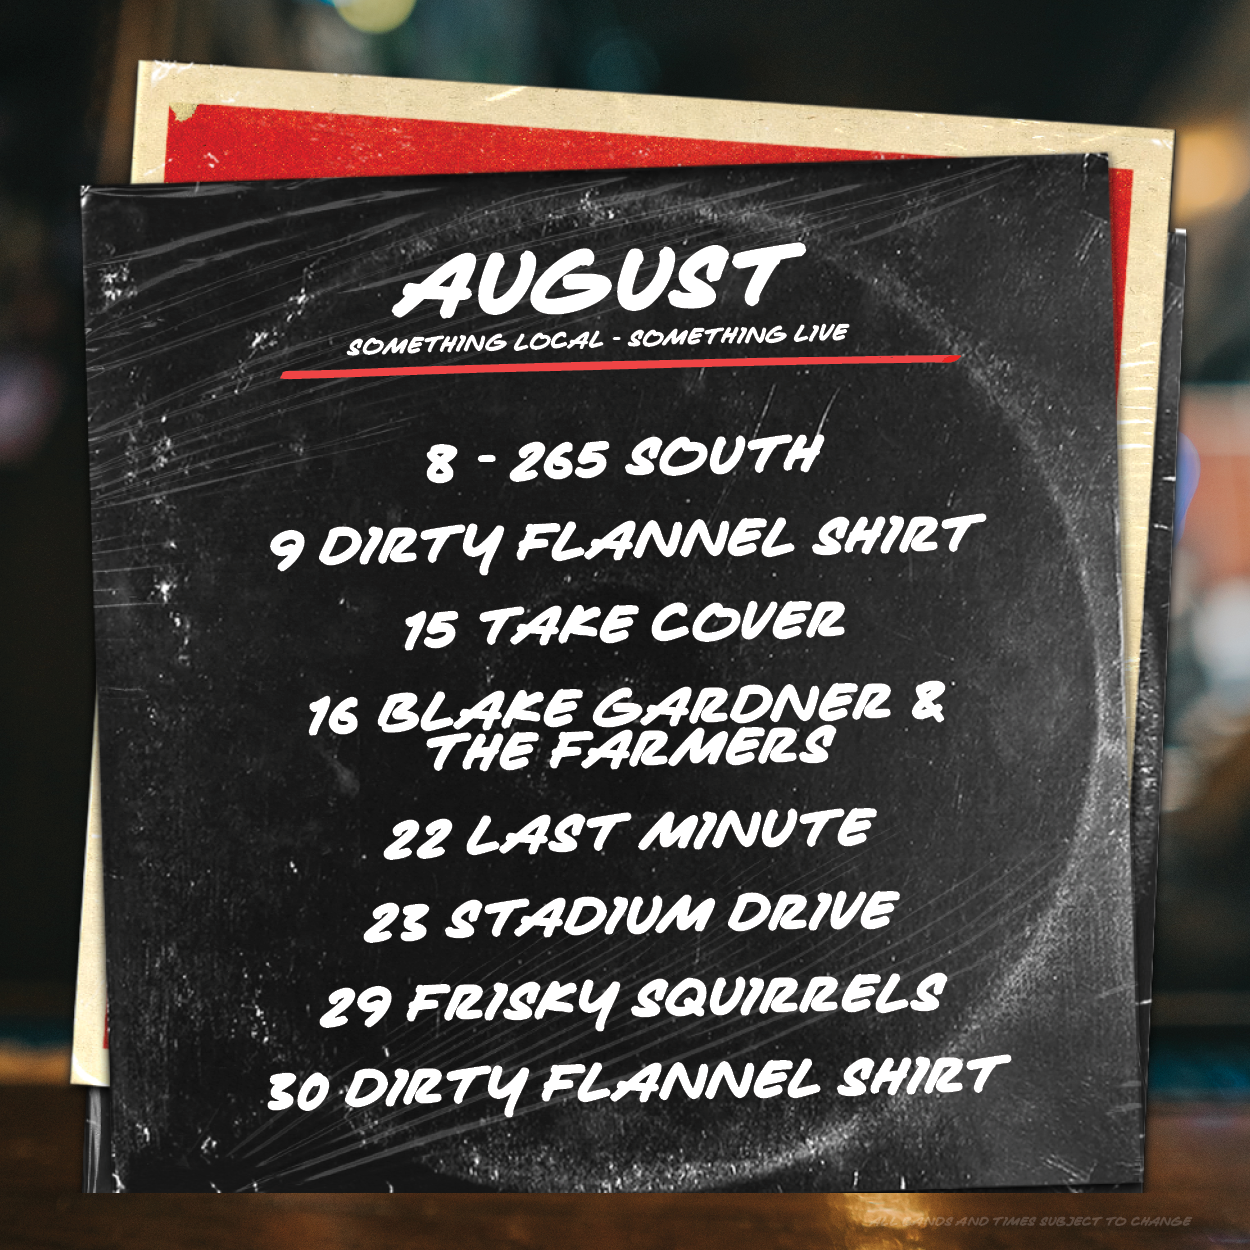 AUGUST
SOMETHING LOCAL - SOMETHING LIVE
8 - 265 SOUTH
9 DIRTY FLANNEL SHIRT
15 TAKE COVER
16 BLAKE GARDNER &
THE FARMERS
22 LAST MINUTE
23 STADIUM DRIVE
29 FRISKY SQUIRRELS
30 DIRTY FLANNEL SHIRT
ALL BANDS AND TIMES SUBJECT TO CHANGE